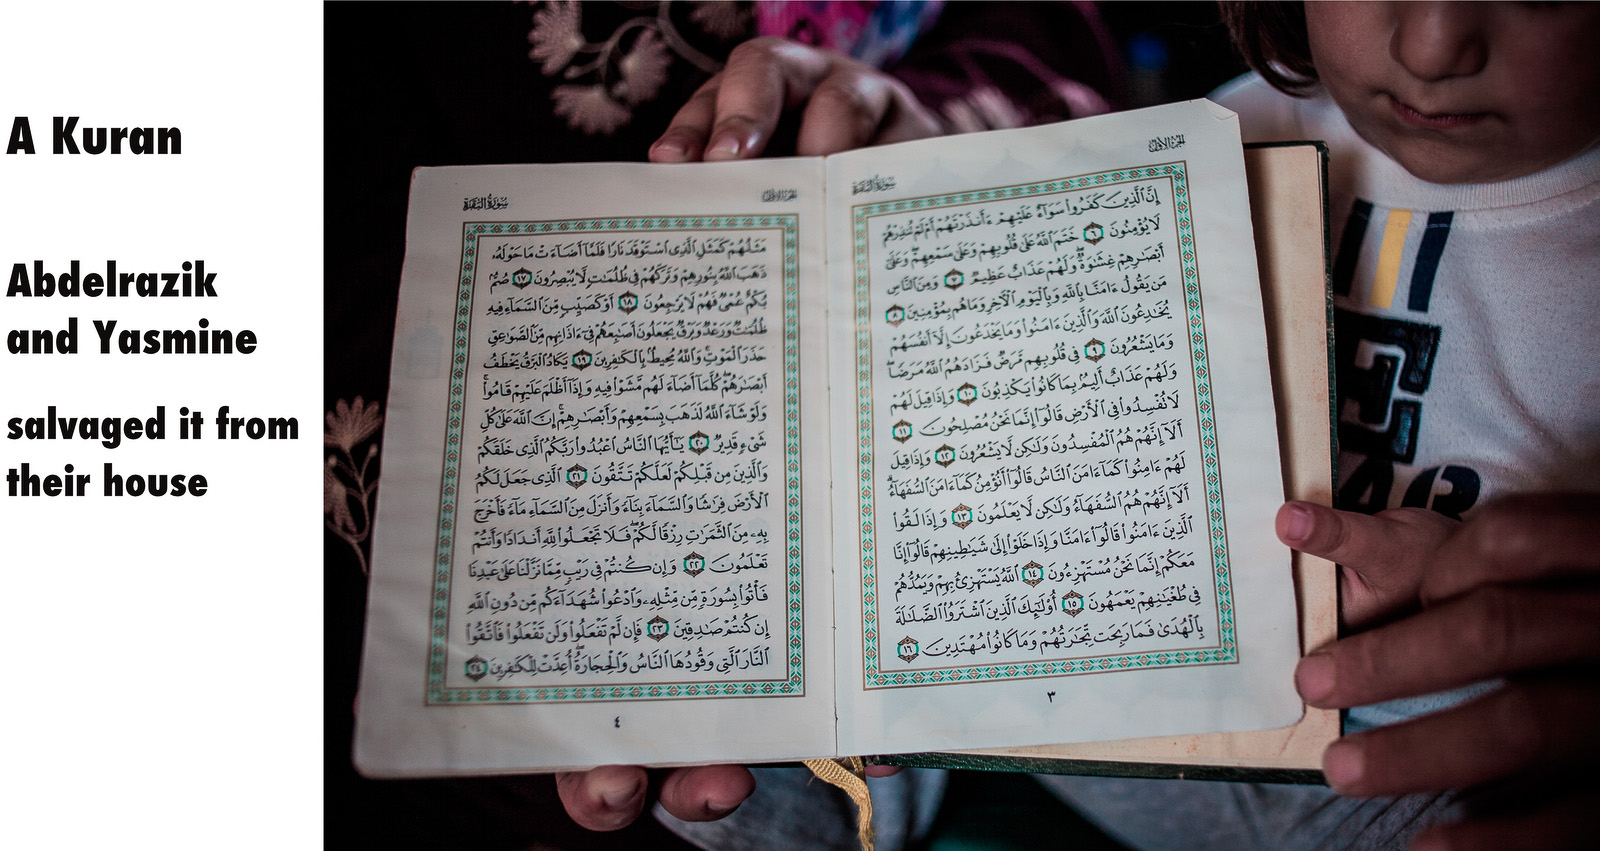 A Kuran
Abdelrazik
and Yasmine
salvaged it from
their house
الجزء الأول
سورة البقرة
إِنَّ ٱلَّذِينَ كَفَرُوا۟ سَوَآءٌ عَلَيْهِمْ ءَأَنذَرْتَهُمْ أَمْ لَمْ تُنذِرْهُمْ
لَا يُؤْمِنُونَ ٦ خَتَمَ ٱللَّهُ عَلَىٰ قُلُوبِهِمْ وَعَلَىٰ سَمْعِهِمْ ۖ وَعَلَىٰٓ
أَبْصَٰرِهِمْ غِشَٰوَةٌ ۖ وَلَهُمْ عَذَابٌ عَظِيمٌ ٧ وَمِنَ ٱلنَّاسِ
مَن يَقُولُ ءَامَنَّا بِٱللَّهِ وَبِٱلْيَوْمِ ٱلْءَاخِرِ وَمَا هُم بِمُؤْمِنِينَ ٨
يُخَٰدِعُونَ ٱللَّهَ وَٱلَّذِينَ ءَامَنُوا۟ وَمَا يَخْدَعُونَ إِلَّآ أَنفُسَهُمْ
وَمَا يَشْعُرُونَ ٩ فِى قُلُوبِهِم مَّرَضٌ فَزَادَهُمُ ٱللَّهُ مَرَضًا ۖ
وَلَهُمْ عَذَابٌ أَلِيمٌۢ بِمَا كَانُوا۟ يَكْذِبُونَ ١٠ وَإِذَا قِيلَ لَهُمْ
لَا تُفْسِدُوا۟ فِى ٱلْأَرْضِ قَالُوٓا۟ إِنَّمَا نَحْنُ مُصْلِحُونَ ١١
أَلَآ إِنَّهُمْ هُمُ ٱلْمُفْسِدُونَ وَلَٰكِن لَّا يَشْعُرُونَ ١٢ وَإِذَا قِيلَ
لَهُمْ ءَامِنُوا۟ كَمَآ ءَامَنَ ٱلنَّاسُ قَالُوٓا۟ أَنُؤْمِنُ كَمَآ ءَامَنَ ٱلسُّفَهَآءُ ۗ
أَلَآ إِنَّهُمْ هُمُ ٱلسُّفَهَآءُ وَلَٰكِن لَّا يَعْلَمُونَ ١٣ وَإِذَا لَقُوا۟
ٱلَّذِينَ ءَامَنُوا۟ قَالُوٓا۟ ءَامَنَّا وَإِذَا خَلَوْا۟ إِلَىٰ شَيَٰطِينِهِمْ قَالُوٓا۟ إِنَّا
مَعَكُمْ إِنَّمَا نَحْنُ مُسْتَهْزِءُونَ ١٤ ٱللَّهُ يَسْتَهْزِئُ بِهِمْ وَيَمُدُّهُمْ
فِى طُغْيَٰنِهِمْ يَعْمَهُونَ ١٥ أُو۟لَٰٓئِكَ ٱلَّذِينَ ٱشْتَرَوُا۟ ٱلضَّلَٰلَةَ
بِٱلْهُدَىٰ فَمَا رَبِحَت تِّجَٰرَتُهُمْ وَمَا كَانُوا۟ مُهْتَدِينَ ١٦
٣
الجزء الأول
سورة البقرة
مَثَلُهُمْ كَمَثَلِ ٱلَّذِى ٱسْتَوْقَدَ نَارًا فَلَمَّآ أَضَآءَتْ مَا حَوْلَهُۥ
ذَهَبَ ٱللَّهُ بِنُورِهِمْ وَتَرَكَهُمْ فِى ظُلُمَٰتٍ لَّا يُبْصِرُونَ ١٧ صُمٌّۢ
بُكْمٌ عُمْىٌ فَهُمْ لَا يَرْجِعُونَ ١٨ أَوْ كَصَيِّبٍ مِّنَ ٱلسَّمَآءِ فِيهِ
ظُلُمَٰتٌ وَرَعْدٌ وَبَرْقٌ يَجْعَلُونَ أَصَٰبِعَهُمْ فِىٓ ءَاذَانِهِم مِّنَ ٱلصَّوَٰعِقِ
حَذَرَ ٱلْمَوْتِ ۚ وَٱللَّهُ مُحِيطٌۢ بِٱلْكَٰفِرِينَ ١٩ يَكَادُ ٱلْبَرْقُ يَخْطَفُ
أَبْصَٰرَهُمْ ۖ كُلَّمَآ أَضَآءَ لَهُم مَّشَوْا۟ فِيهِ وَإِذَآ أَظْلَمَ عَلَيْهِمْ قَامُوا۟ ۚ
وَلَوْ شَآءَ ٱللَّهُ لَذَهَبَ بِسَمْعِهِمْ وَأَبْصَٰرِهِمْ ۚ إِنَّ ٱللَّهَ عَلَىٰ كُلِّ
شَىْءٍ قَدِيرٌ ٢٠ يَٰٓأَيُّهَا ٱلنَّاسُ ٱعْبُدُوا۟ رَبَّكُمُ ٱلَّذِى خَلَقَكُمْ
وَٱلَّذِينَ مِن قَبْلِكُمْ لَعَلَّكُمْ تَتَّقُونَ ٢١ ٱلَّذِى جَعَلَ لَكُمُ
ٱلْأَرْضَ فِرَٰشًا وَٱلسَّمَآءَ بِنَآءً وَأَنزَلَ مِنَ ٱلسَّمَآءِ مَآءً فَأَخْرَجَ
بِهِۦ مِنَ ٱلثَّمَرَٰتِ رِزْقًا لَّكُمْ ۖ فَلَا تَجْعَلُوا۟ لِلَّهِ أَندَادًا وَأَنتُمْ
تَعْلَمُونَ ٢٢ وَإِن كُنتُمْ فِى رَيْبٍ مِّمَّا نَزَّلْنَا عَلَىٰ عَبْدِنَا
فَأْتُوا۟ بِسُورَةٍ مِّن مِّثْلِهِۦ وَٱدْعُوا۟ شُهَدَآءَكُم مِّن دُونِ ٱللَّهِ
إِن كُنتُمْ صَٰدِقِينَ ٢٣ فَإِن لَّمْ تَفْعَلُوا۟ وَلَن تَفْعَلُوا۟ فَٱتَّقُوا۟
ٱلنَّارَ ٱلَّتِى وَقُودُهَا ٱلنَّاسُ وَٱلْحِجَارَةُ ۖ أُعِدَّتْ لِلْكَٰفِرِينَ ٢٤
٤